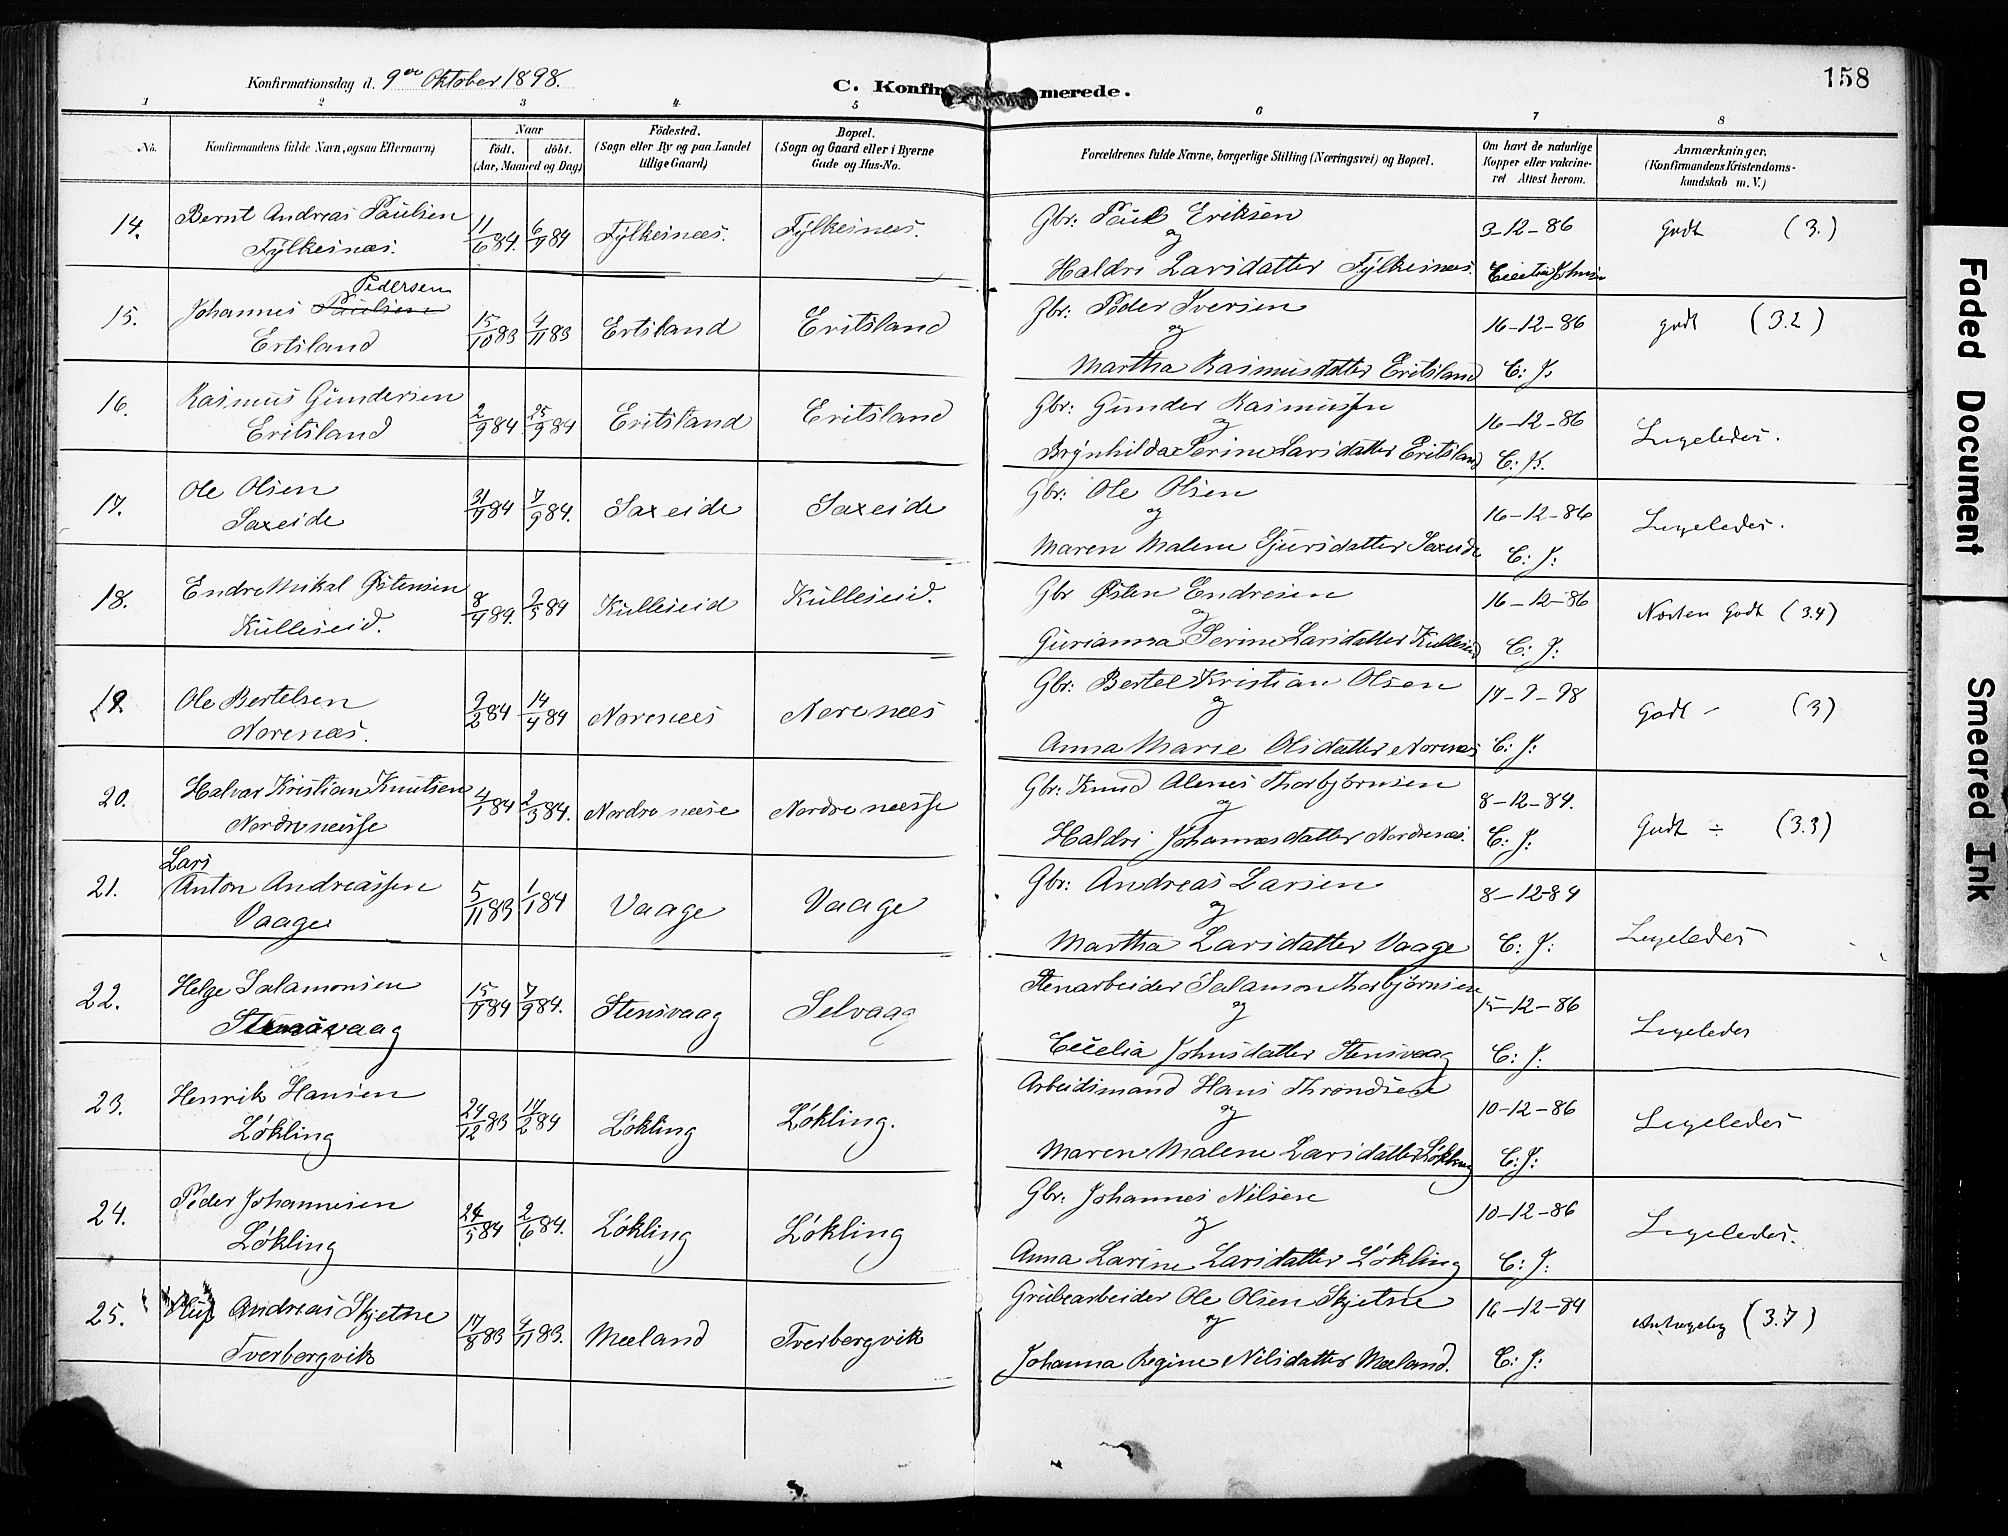 Konfirmationsdag d. 9de Oktober 1898.
C. Konfirmerede.
158
1 2 3 4 5 6 7 8
No.
Konfirmandens fulde Navn, ogsaa Efternavn)
Naar
födt. döbt.
(Aar, Maaned og Dag)
Födested.
(Sogn eller By og paa Landet
tillige Gaard)
Bopæl.
(Sogn og Gaard eller i Byerne
Gade og Hus-No.
Forældrenes fulde Navne, borgerlige Stilling (Næringsvei) og Bopæl.
Om havt de naturlige
Kopper eller vakcine-
ret Attest herom.
Anmærkninger,
(Konfirmandens Kristendoms-
kundskab m. V.)
14. Bernt Andreas Paulsen 11/6 84. 6/9 84 Fylkesnæs. Fylkesnæs. Gbr: Paul Eriksen 3-12-86 Godt (3.)
Fylkesnæs. og
Haldri Larsdatter Fylkesnæs. Cecilia Johnsen
15. Johannes Paulsen Pedersen 15/10 83 4/11 83 Ertsland Eritsland Gbr: Peder Iversen 16-12-86 godt (3.2)
Ertsland og
Martha Rasmusdatter Eritsland C: J.
16. Rasmus Gundersen 2/9 84 25/9 84 Eritsland Eritsland Gbr: Gunder Rasmussen 16-12-86 Ligeledes.
Eritsland og
Brynhilda Serine Larsdatter Eritsland C: J.
17. Ole Olsen 31/7 84 7/9 84. Saxeide Saxeide Gbr: Ole Olsen 16-12-86 Ligeledes.
Saxeide og
Maren Malene Sjursdatter Saxeide C: J:
18. Endre Mikal Østensen 8/4 84. 2/5 84 Kulleseid Kulleseid. Gbr Østen Endresen 16-12-86 Næsten Godt (3.4)
Kulleseid. og
Gurianna Serine Larsdatter Kulleseid C: J:
19. Ole Bertelsen 9/2 84 14/4 84 Norenæs Norenæs Gbr: Bertel Kristian Olsen 17-9-98 Godt - (3)
Norenæs. og
Anna Marie Olsdatter Norenæs C: J:
20. Halvar Kristian Knutsen 4/1 84 2/3 84. Nordrenæsse Nordrenæsse Gbr: Knud Alenes Thorbjørnsen 8-12-84. Godt ÷ (3.3)
Nordrenæsse og
Haldri Johannesdatter Nordrenæs. C: J:
21. Lars Anton Andreassen 5/11 83 1/1 84 Vaage Vaage Gbr: Andreas Larsen 8-12-84 Ligeledes
Vaage og
Martha Larsdatter Vaage C: J:
22. Helge Salamonsen 15/7 84 7/9 84. Stensvaag Selvaag Stenarbeider Salamon Thorbjørnsen 15-12-86 Ligeledes
Stensvaag og
Cecelia Johnsdatter Stensvaag C: J:
23. Henrik Hansen 24/12 83 17/2 84 Løkling Løkling. Arbeidsmand Hans Throndsen 10-12-86 Ligeledes
Løkling og
Maren Malene Larsdatter Løkling C: J:
24. Peder Johannesen 24/5 84 2/6 84. Løkling Løkling Gbr: Johannes Nilsen 10-12-86 Ligeledes.
Løkling og
Anna Larine Larsdatter Løkling C: J.
25. Andreas Skjetne 17/8 83 4/11 83. Mæland Tverbergvik Grubearbeider Ole Olsen Skjetne 16-12-84 Antagelig (3.7)
Tverbergvik og
Johanna Regine Nilsdatter Mæland. C: J:
Faded Document
Smeared Ink